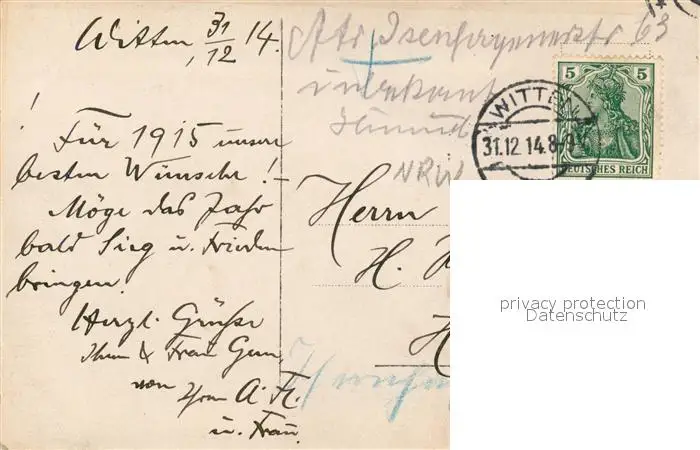 Witten, 31/12 14.
!
Für 1915 unsere
besten Wünsche!
Möge das Jahr
bald Sieg u. Frieden
bringen.
Herzl. Grüße
Ihnen & Frau Gem.
von Ihrem A. H.
u. Frau.
63
unbekannt
NRW
WITTEN
31.12 14.8-9
5 5
DEUTSCHES REICH
Herrn
H.
H
privacy protection
Datenschutz